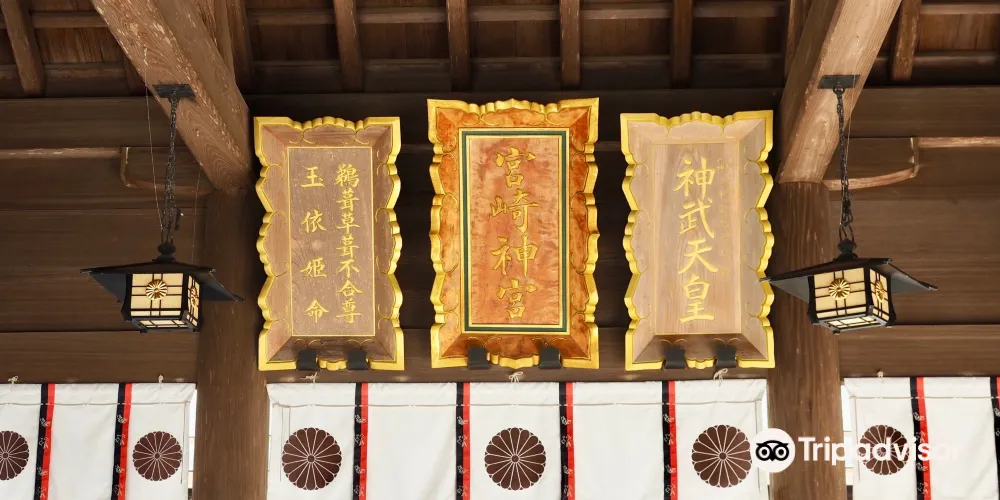 神武天皇
宮崎神宮
鵜葺草葺不合尊
玉依姫命
Tripadvisor